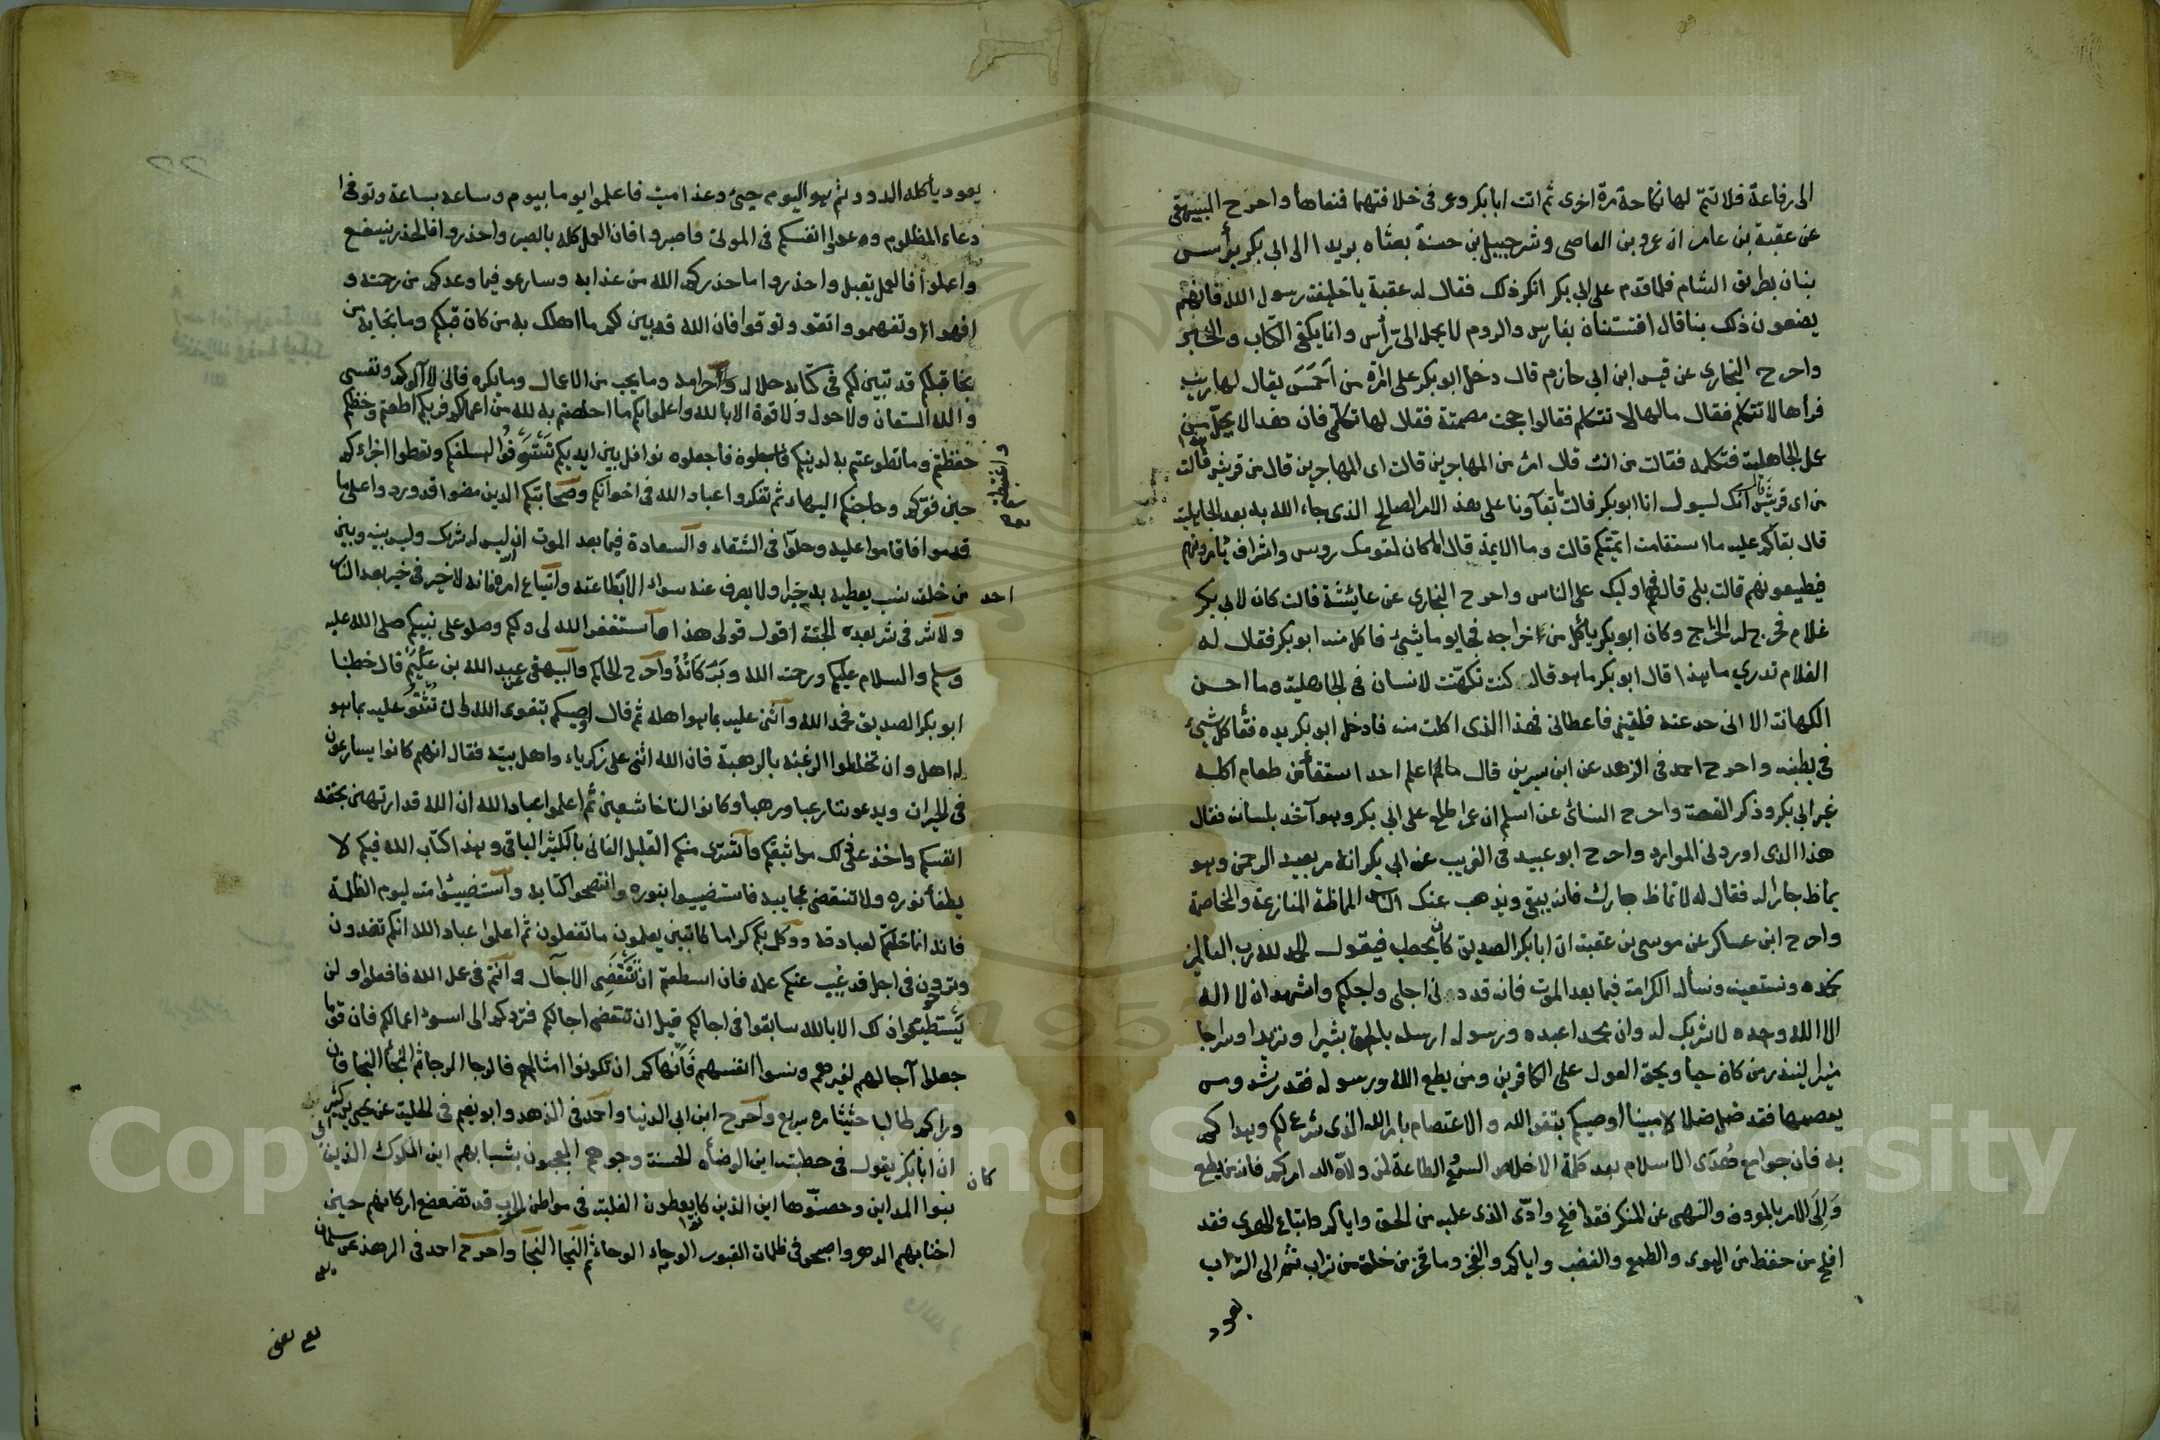 الى رفاعة فلا تتم لها نكاحة مرة اخرى ثم اتت ابا بكر وعمر في خلافتهما فمنعاها واخرج البيهقي
عن عقبة بن عامر ان عمرو بن العاصى وشرحبيل بن حسنة بعثاه بريدا الى ابي بكر برأس
بنان بطريق الشام فلما قدم على ابي بكر انكر ذلك فقال له عقبة يا خليفة رسول الله فانهم
يصنعون ذلك بنا قال افتستنان بفارس والروم لا يحمل الىّ رأس وانما يكفى الكتاب والخبر
واخرج البخارى عن قيس ابن ابى حازم قال دخل ابو بكر على امرة من احمس يقال لها زينب
فرأها لا تتكلم فقال ما لها لا تتكلم فقالوا حجت مصمتة فقال لها تكلمى فان هذا لا يحل هذا من
عمل الجاهلية فتكلمت فقالت من انت قال امرؤ من المهاجرين قالت اى المهاجرين قال من قريش قالت
من اى قريش قال انك لسول انا ابو بكر قالت ما بقآونا على هذا الامر الصالح الذى جاء الله به بعد الجاهلية
قال بقآكم عليه ما استقامت ائمتكم قالت وما الايمة قال اما كان لقومك روس واشراف يأمرونهم
فيطيعونهم قالت بلى قال فهم اوليك على الناس واخرج البخارى عن عايشة قالت كان لابى بكر
غلام يخرج له الخراج وكان ابو بكر يأكل من خراجه فجا يوما بشئ فاكل منه ابو بكر فقال له
الغلام تدري ما هذا قال ابو بكر ما هو قال كنت تكهنت لانسان في الجاهلية وما احسن
الكهانة الا انى خدعته فلقينى فاعطانى فهذا الذى اكلت منه فادخل ابو بكر يده فقأ كل شئ
في بطنه واخرج احمد في الزهد عن ابن سيرين قال لم اعلم احدا استقأ من طعام اكله
غير ابى بكر وذكر القصة واخرج النسائ عن اسلم ان عمر اطلع على ابى بكر وهو آخذ بلسانه فقال
هذا الذى اوردنى الموارد واخرج ابو عبيد في الغريب عن ابى بكر انه مر بعبد الرحمن وهو
يماظ جارا له فقال له لا تماظ جارك فانه يبقى ويذهب عنك الناس المماظة المنازعة والمخاصمة
واخرج ابن عساكر عن موسى بن عقبة ان ابا بكر الصديق كان يخطب فيقول الحمد لله رب العالمين
نحمده ونستعينه ونسأله الكرامة فيما بعد الموت فانه قد دنى اجلى واجلكم واشهد ان لا اله
الا الله وحده لا شريك له وان محمدا عبده ورسوله ارسله بالحق بشيرا ونذيرا وسراجا
منيرا لينذر من كان حيا ويحق القول على الكافرين ومن يطع الله ورسوله فقد رشد ومن
يعصهما فقد ضل ضلالا مبينا اوصيكم بتقو الله والاعتصام بامر الله الذى شرع لكم وهداكم
به فان جوامع هُدَى الاسلام بعد كلمة الاخلاص السمع والطاعة لمن ولاه الله امركم فانه من يطع
وَالِى الامر بالمعروف والنهى عن المنكر فقد افلح وادّى الذى عليه من الحق واياكم واتباع الهوى فقد
افلح من حفظ من الهوى والطمع والغضب واياكم والفخر وما فخر من خلق من تراب ثم الى التراب
يعود
يعود يأكله الدود ثم هو اليوم حيّ وغدا ميت فاعلموا يوما بيوم وساعة بساعة وتوقوا
دعاء المظلوم وعدوا انفسكم في الموتى واصبروا فان العمل كله بالصبر واحذروا فالحذر ينفع
واعملوا فالعمل يقبل واحذروا ما حذركم الله من عذابه وسارعوا فيما وعدكم من رحمته و
افهموا وتفهموا واتقو وتوقوا فان الله قد بين لكم ما اهلك به من كان قبلكم وما نجا به من
نجا قبلكم قد تبين لكم في كتابه حلاله وحرامه وما يحب من الاعمال وما يكره فانى لا آلوكم ونفسى
والله المستعان ولا حول ولا قوة الا بالله واعلموا انكم ما اخلصتم به لله من اعمالكم فربكم اطعتم وحظكم
حفظتم واغتبطتم وما تطوعتم به لدينكم فاجعلوه نوافل بين ايديكم تستوفوا لسلفكم وتعطوا اجراءكم
حين فقركم وحاجتكم اليها ثم تفكروا عباد الله في اخوانكم وصحابتكم الذين مضوا قد وردوا على ما
قدموا فاقاموا عليه وحلوا فى الشقاء والسعادة فيما بعد الموت ان الله ليس له شريك وليس بينه وبين
احد من خلقه نسب يعطيه به خيرا ولا يصرف عنه سواء الا بطاعته واتباع امره فانه لا خير في خير بعده النار
ولا شر في شر بعده الجنة اقول قولى هذا واستغفر الله لى ولكم وصلوا على نبيكم صلى الله عليه
وسلم والسلام عليكم ورحمت الله وبَرَكَاتُهُ واخرج الحاكم والبيهقى عن عبد الله بن عُكَيْم قال خطبنا
ابو بكر الصديق فحمد الله واثنى عليه بما هو اهله ثم قال اوصيكم بتقوى الله وان تثنو عليه بما هو
له اهل وان تخلطوا الرغبة بالرهبة فان الله اثنى على زكرياء واهل بيته فقال انهم كانوا يسارعون
فى الخيرات ويدعوننا رغبا ورهبا وكانوا لنا خاشعين ثم اعلموا عباد الله ان الله قد ارتهن بحقه
انفسكم واخذ على ذلك مواثيقكم واشترى منكم القليل الفانى بالكثير الباقى وهذا كتاب الله فيكم لا
يطفأ نوره ولا تنقضى عجايبه فاستضييوا بنوره وانتصحوا كتابه واستضييئوا منه ليوم الظلمة
فانه انما خلقكم لعبادته ووكل بكم كراما كاتبين يعلمون ما تفعلون ثم اعلموا عباد الله انكم تغدون
وتروحون في اجل قد غيب عنكم علمه فان استطعتم ان تنقضى الاجآل وانتم في عمل الله فافعلوا ولن
تستطيعوا ذلك الا بالله سابقوا في اجالكم قبل ان تنقضى اجالكم فتردكم الى اسوء اعمالكم فان قوما
جعلوا آجالهم لغيرهم ونسوا انفسهم فأنهاكم ان تكونوا امثالهم فالوحا الوحا ثم النجأ النجا فان
وراكم طالبا حثيثا مره سريع واخرج ابن ابى الدنيا واحمد في الزهد وابو نعيم في الحلية عن يحيى بن كثير
ان ابا بكر كان يقول في خطبته اين الوضأه الحسنة وجوههم المعجبون بشبابهم اين الملوك الذين
بنوا المداين وحصنوها اين الذين كانوا يعطون الغلبة في مواطن الحرب قد تضعضع اركانهم حين
اخنا بهم الدهر واصبحوا في ظلمات القبور الوحاء الوحاء ثم النجا النجا واخرج احمد في الزهد عن سلمان